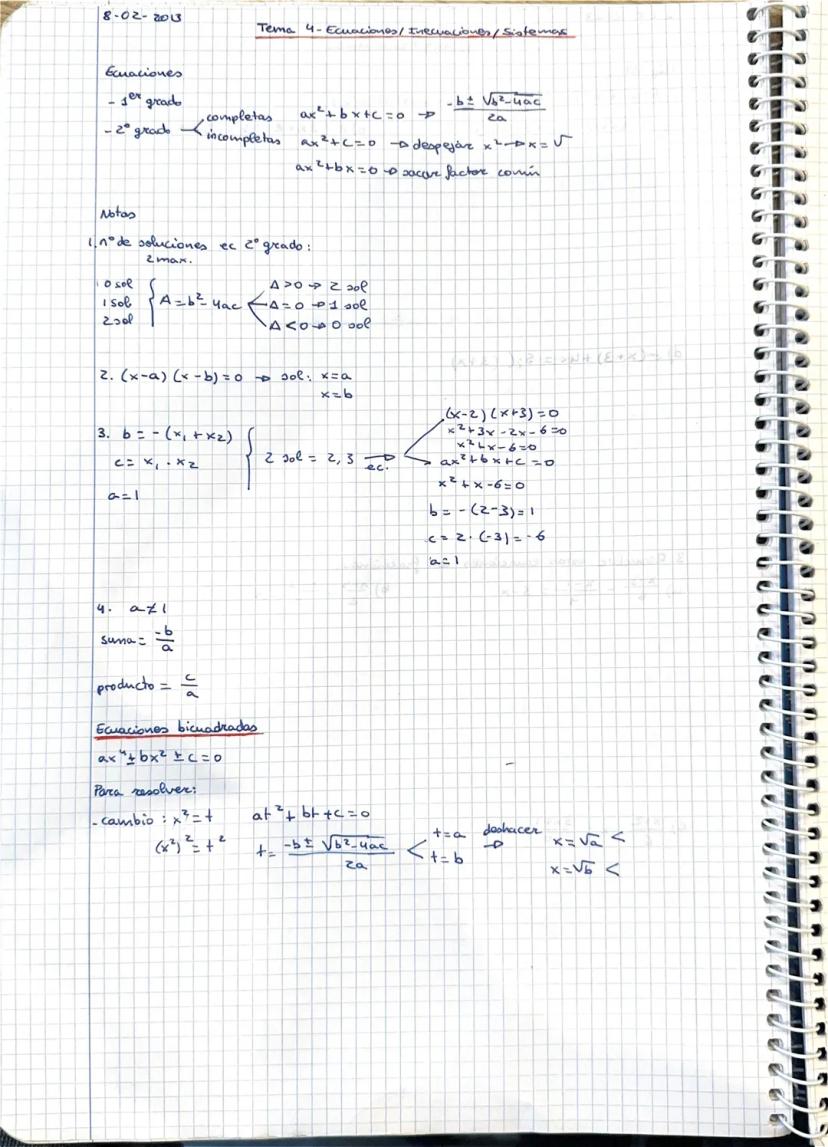 8-02-2013
Tema 4-Ecuaciones/Inecuaciones/Sistemas
Ecuaciones
- 1er grado
- 2º grado < completas ax²+bx+c=0 → -b ± √b²-4ac / 2a
incompletas ax²+c=0 → despejar x² → x=√
ax²+bx=0 → sacar factor común
Notas
1. nº de soluciones ec 2º grado:
2 max.
0 sol
1 sol
2 sol
Δ=b²-4ac
Δ>0 → 2 sol
Δ=0 → 1 sol
Δ<0 → 0 sol
2. (x-a)(x-b)=0 → sol: x=a
x=b
3. b=-(x₁+x₂)
c=x₁·x₂
a=1
2 sol = 2,3 → ec.
(x-2)(x+3)=0
x²+3x-2x-6=0
x²+x-6=0
ax²+bx+c=0
x²+x-6=0
b=-(2-3)=1
c=2·(-3)=-6
a=1
4. a≠1
suma= -b/a
producto= c/a
Ecuaciones bicuadradas
ax⁴±bx²±c=0
Para resolver:
-cambio: x²=t at²+bt+c=0
(x²)²=t² t= -b ± √b²-4ac / 2a < t=a
t=b
deshacer → x=√a <
x=√b <